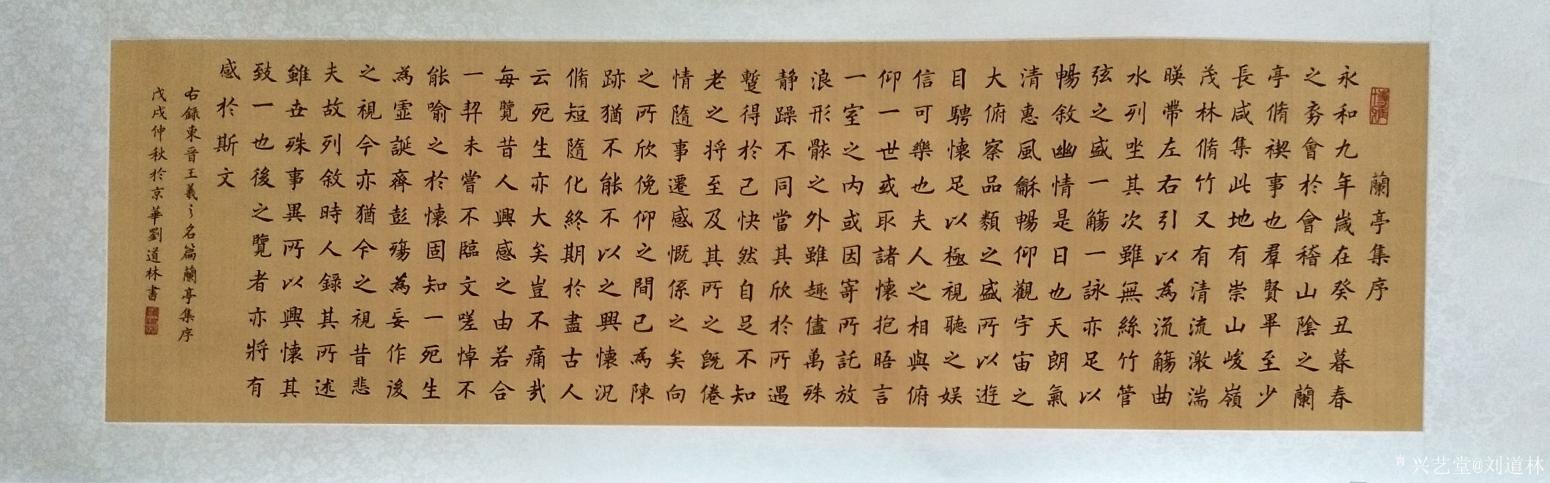 蘭亭集序
永和九年歲在癸丑暮春
之初會於會稽山陰之蘭
亭脩禊事也羣賢畢至少
長咸集此地有崇山峻嶺
茂林脩竹又有清流激湍
暎帶左右引以為流觴曲
水列坐其次雖無絲竹管
弦之盛一觴一詠亦足以
暢敘幽情是日也天朗氣
清惠風龢暢仰觀宇宙之
大俯察品類之盛所以遊
目騁懷足以極視聽之娛
信可樂也夫人之相與俯
仰一世或取諸懷抱晤言
一室之內或因寄所託放
浪形骸之外雖趣儘萬殊
静躁不同當其欣於所遇
蹔得於己快然自足不知
老之將至及其所之既倦
情隨事遷感慨係之矣向
之所欣俛仰之間已為陳
跡猶不能不以之興懷況
脩短隨化終期於盡古人
云死生亦大矣豈不痛哉
每覽昔人興感之由若合
一契未嘗不臨文嗟悼不
能喻之於懷固知一死生
為虛誕齊彭殤為妄作後
之視今亦猶今之視昔悲
夫故列敘時人錄其所述
雖世殊事異所以興懷其
致一也後之覽者亦將有
感於斯文
右錄東晉王羲之名篇蘭亭集序
戊戌仲秋於京華劉道林書
兴艺堂@刘道林